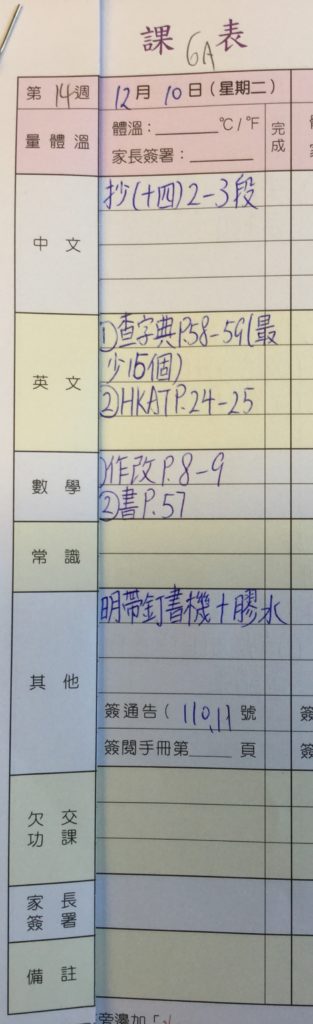 課 6A 表
第 14 週 12 月 10 日 (星期二)
量體溫 體溫：______°C/°F 完成
家長簽署：______
中文 抄(十四)2-3段
英文 ①查字典P.58-59(最
少15個)
②HKAT P.24-25
數學 ①作改P.8-9
②書P.57
常識
其他 明帶釘書機+膠水
簽通告( 110,11 號
簽閱手冊第____頁
欠交功課
家長簽署
備註
旁邊加「